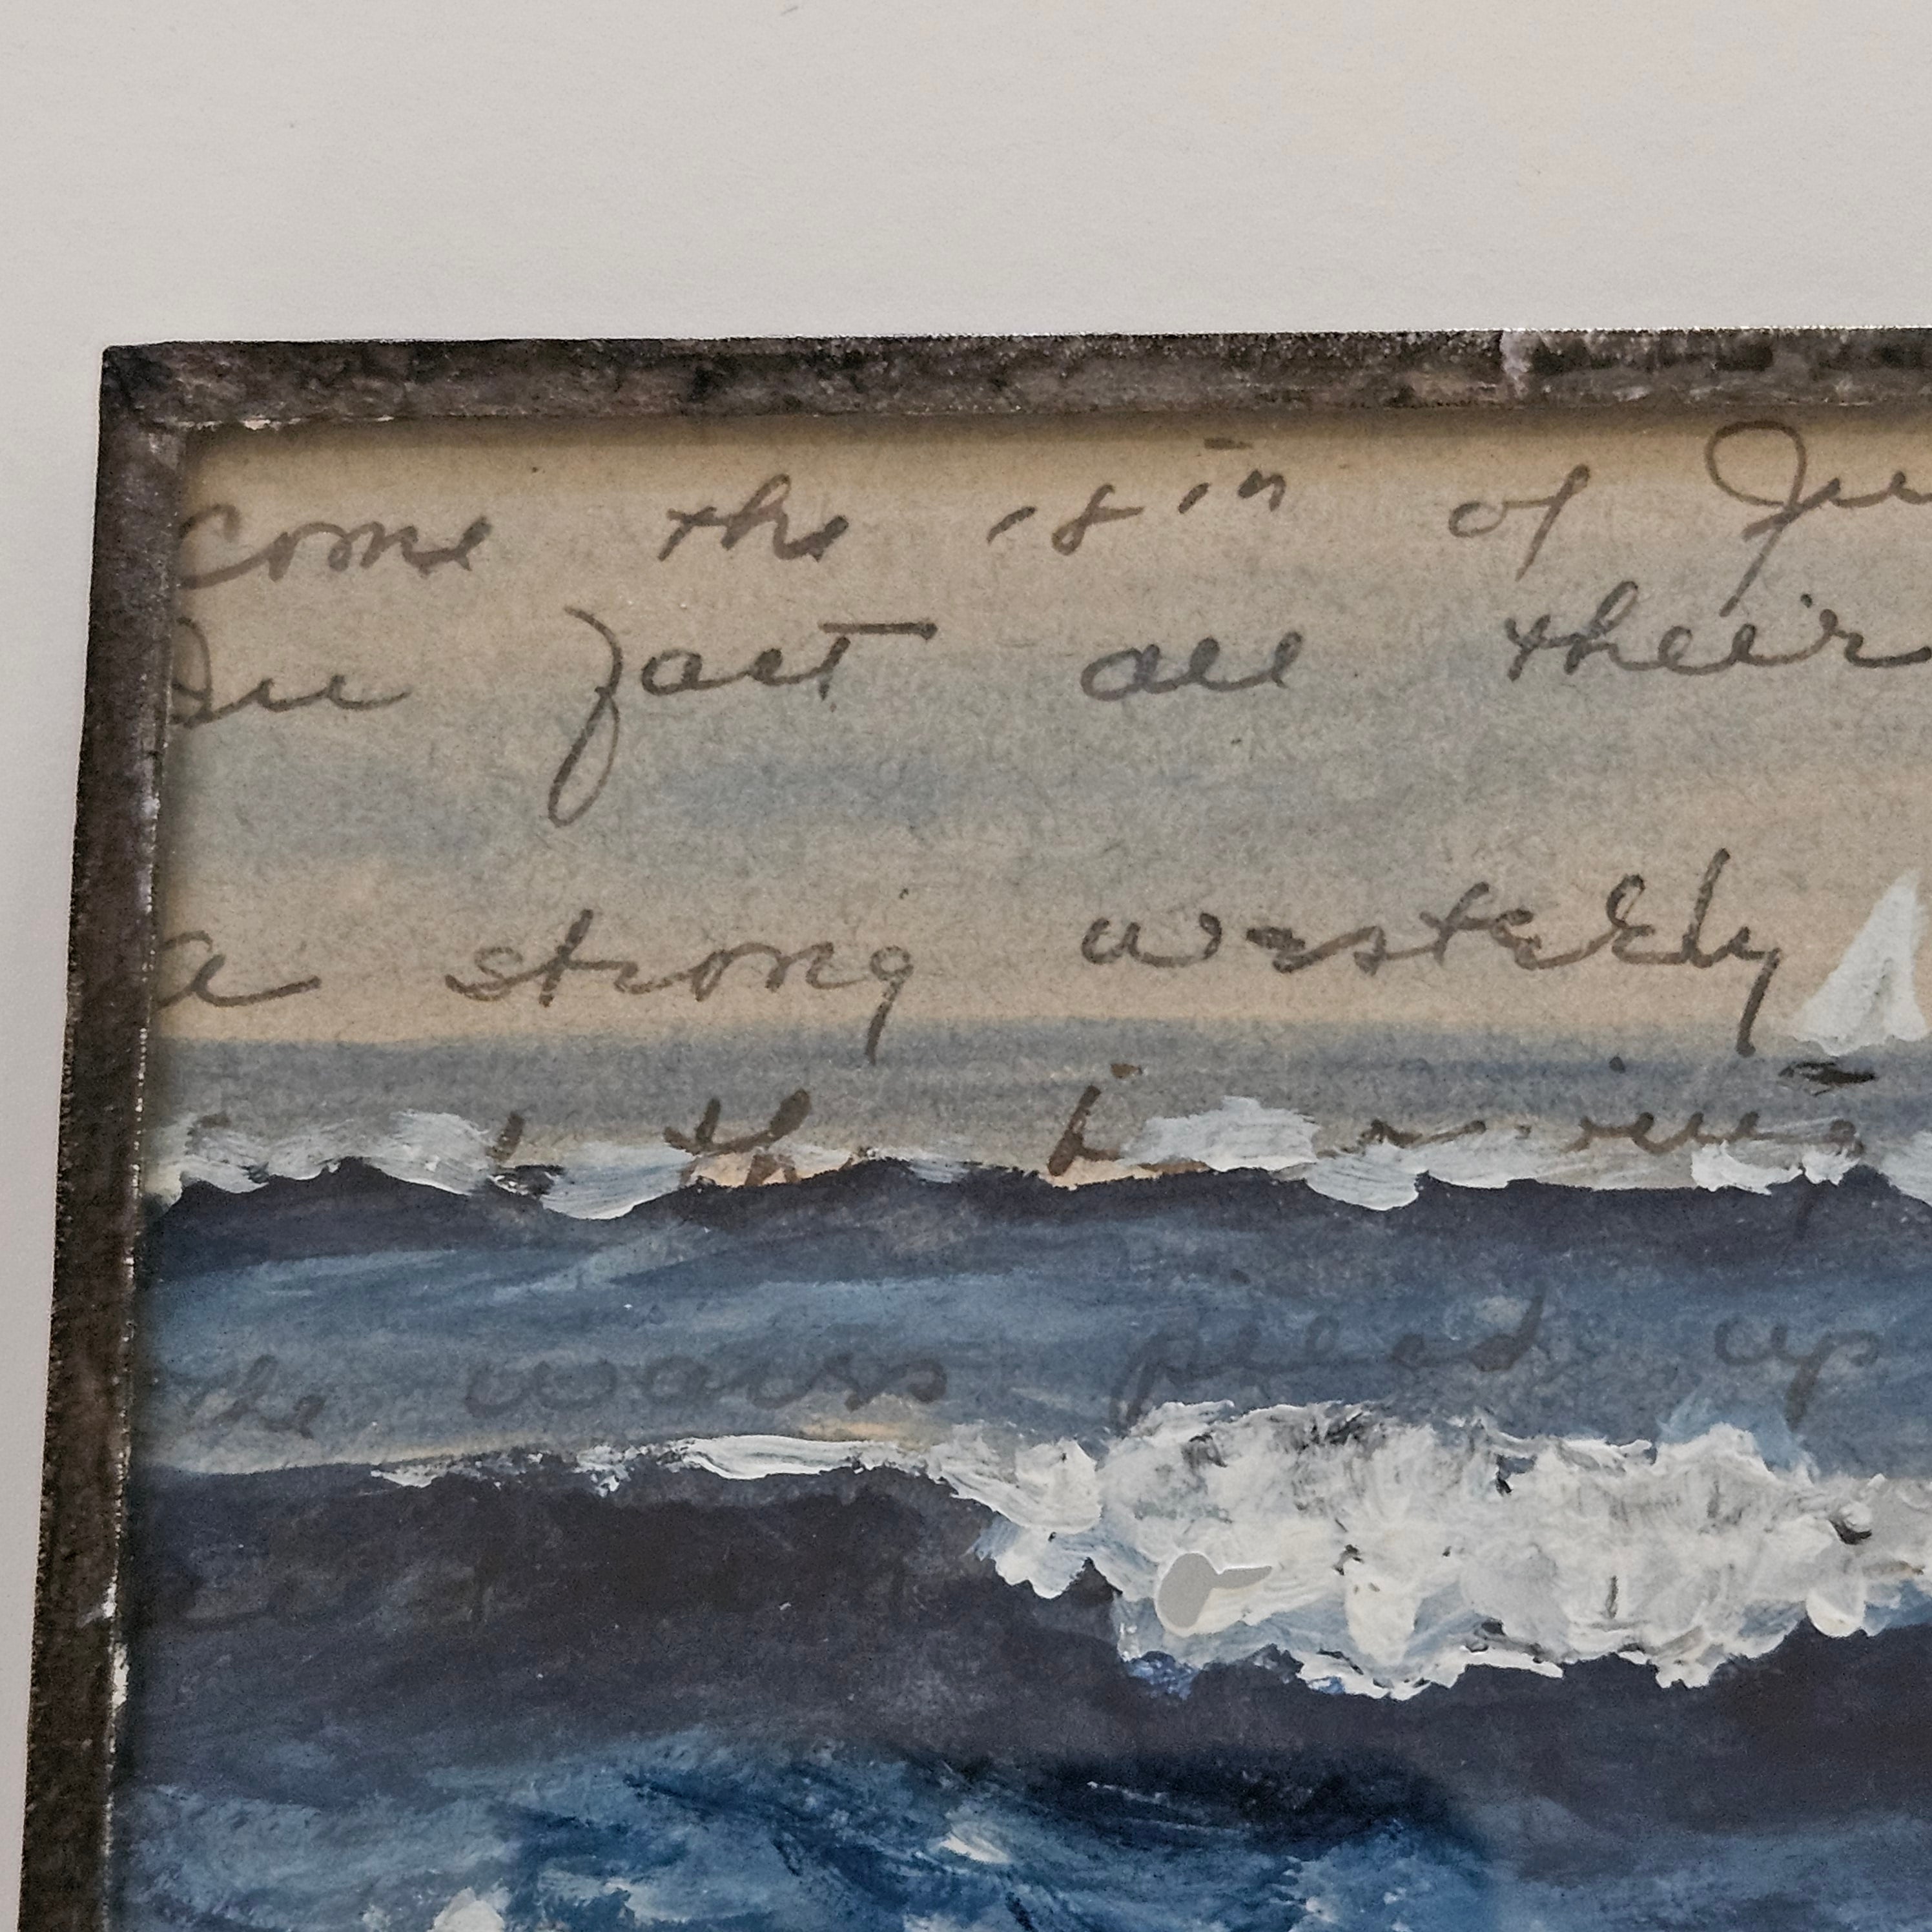 come the 18th of Ju
In fact all their
a strong westerly
the
the waves piled up